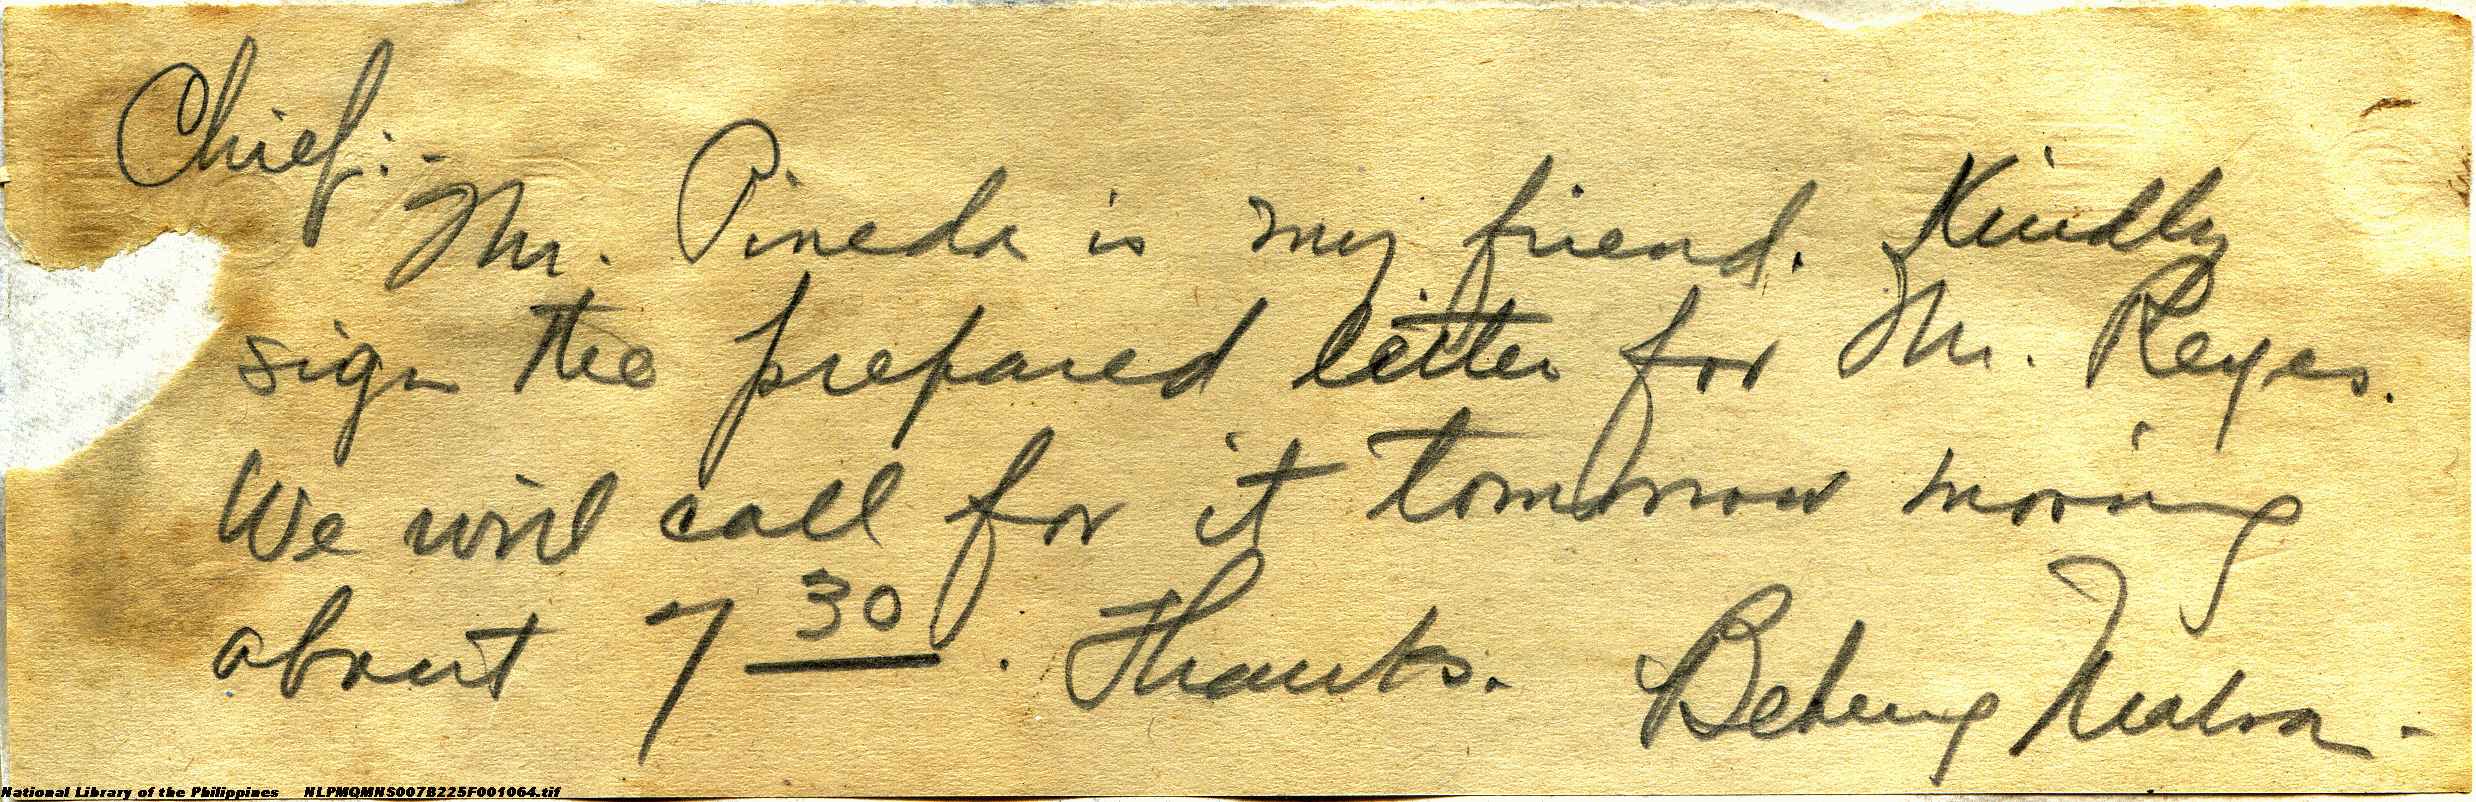 Chief:-
Mr. Pineda is my friend. Kindly
sign the prepared letter for Mr. Reyes.
We will call for it tomorrow morning
about 7 30. Thanks.
National Library of the Philippines NLPMQMNS007B225F001064.tif